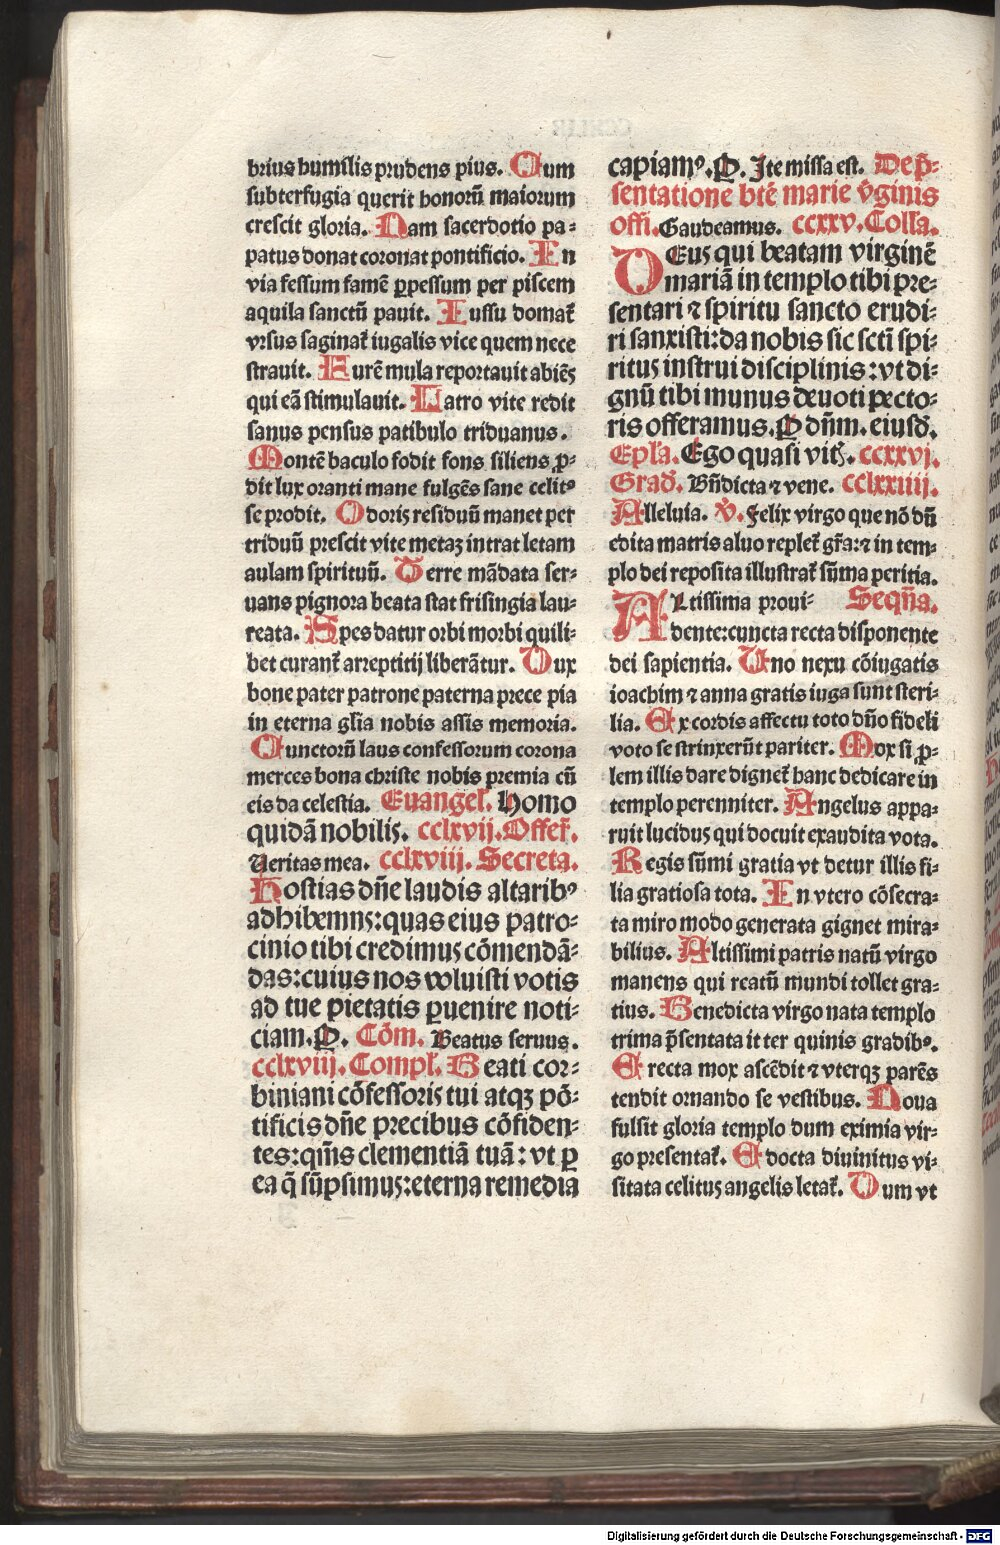 brius humilis prudens pius. Cum
subterfugia querit honorū maiorum
crescit gloria. Nam sacerdotio pa⸗
patus donat coronat pontificio. In
via fessum famē ꝑpessum per piscem
aquila sanctū pauit. Iussu domat᷑
vrsus saginat᷑ iugalis vice quem nece
strauit. Eurē mula reportauit abiēs
qui eā stimulauit. Latro vite redit
sanus pensus patibulo triduanus.
Montē baculo fodit fons siliens ꝓ⸗
dit lux oranti mane fulgēs sane celitꝰ
se prodit. Odoris residuū manet per
triduū prescit vite metaꝫ intrat letam
aulam spirituū. Terre mādata ser⸗
uans pignora beata stat frisingia lau⸗
reata. Spes datur orbi morbi quili⸗
bet curant᷑ arreptitij liberātur. Dux
bone pater patrone paterna prece pia
in eterna gl̄ia nobis assis memoria.
Cunctorū laus confessorum corona
merces bona christe nobis premia cū
eis da celestia. Euangel᷑. Homo
quidā nobilis. cclxvij. Offer᷑.
Veritas mea. cclxviii. Secreta.
Hostias dn̄e laudis altaribꝰ
adhibemns: quas eius patro⸗
cinio tibi credimus cōmendā⸗
das: cuius nos voluisti votis
ad tue pietatis ꝑuenire noti⸗
ciam. P. Cōm. Beatus seruus.
cclxviij. Compl᷑. Beati cor⸗
biniani cōfessoris tui atqꝫ pō⸗
tificis dn̄e precibus cōfiden⸗
tes: qm̄s clementiā tuā: vt ꝑ
ea q̄ sūpsimus: eterna remedia
capiamꝰ. P. Ite missa est. De p̄⸗
sentatione btē marie v̓ginis
offi. Gaudeamus. ccxxv. Coll̄a.
DEus qui beatam virginē
mariā in templo tibi pre⸗
sentari ⁊ spiritu sancto erudi⸗
ri sanxisti: da nobis sic sctī spi⸗
ritus instrui disciplinis: vt di⸗
gnū tibi munus deuoti pecto⸗
ris offeramus. P dn̄m. eiusd̄.
Epl̄a. Ego quasi vit᷑. ccxxvj.
Grad̄. Bn̄dicta ⁊ vene. cclxxiiij.
Alleluia. v̓. Felix virgo que nō dū
edita matris aluo replet᷑ gr̄a: ⁊ in tem⸗
plo dei reposita illustrat᷑ sūma peritia.
ALtissima proui⸗ Seqn̄a.
dente: cuncta recta disponente
dei sapientia. Uno nexu cōiugatis
ioachim ⁊ anna gratis iuga sunt steri⸗
lia. Ex cordis affectu toto dn̄o fideli
voto se strinxerūt pariter. Mox si ꝓ⸗
lem illis dare dignet᷑ hanc dedicare in
templo perenniter. Angelus appa⸗
ruit lucidus qui docuit exaudita vota.
Regis sūmi gratia vt detur illis fi⸗
lia gratiosa tota. In vtero cōsecra⸗
ta miro modo generata gignet mira⸗
bilius. Altissimi patris natū virgo
manens qui reatū mundi tollet gra⸗
tius. Benedicta virgo nata templo
trima p̄sentata it ter quinis gradibꝰ.
Erecta mox ascēdit ⁊ vterqꝫ parēs
tendit ornando se vestibus. Noua
fulsit gloria templo dum eximia vir⸗
go presentat᷑. Edocta diuinitus vi⸗
sitata celitus angelis letat᷑. Dum vt
Digitalisierung gefördert durch die Deutsche Forschungsgemeinschaft - DFG